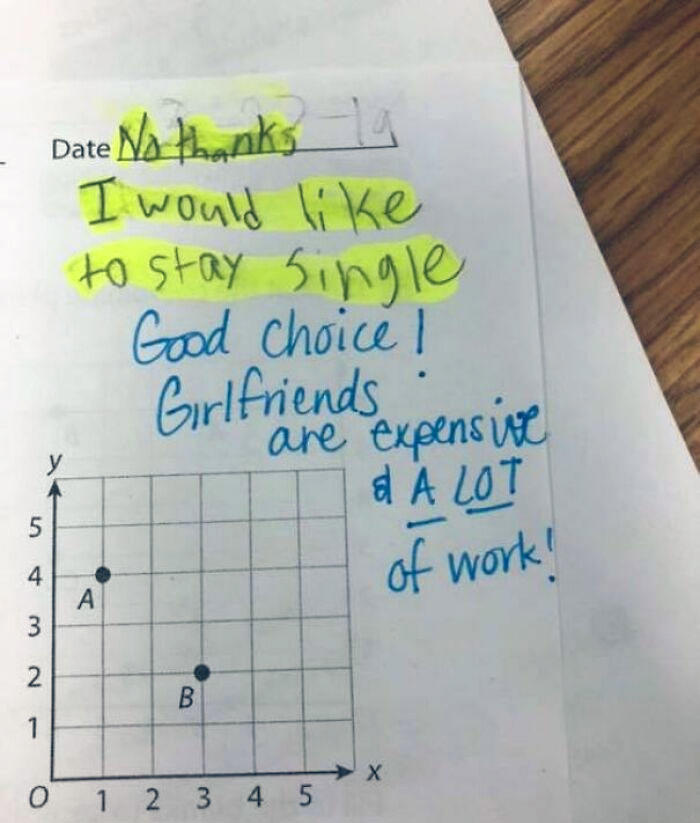 Date No thanks
I would like
to stay single
Good choice!
Girlfriends
are expensive
& A LOT
of work!
y
5
4
A
3
2
B
1
O 1 2 3 4 5 x